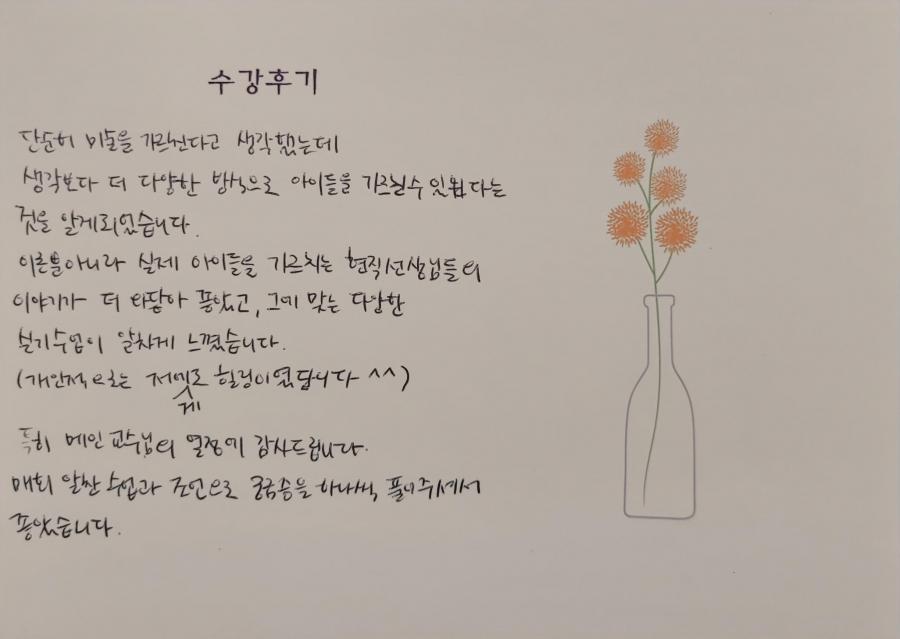 수강후기
단순히 미술을 가르친다고 생각했는데
생각보다 더 다양한 방식으로 아이들을 가르칠수 있다는
것을 알게되었습니다.
이론뿐아니라 실제 아이들을 가르치는 현직선생님들의
이야기가 더 와닿아 좋았고, 그에 맞는 다양한
실기수업이 알차게 느꼈습니다.
(개인적으로는 저에게도 힐링이였답니다 ^^)
특히 메인 교수님의 열정에 감사드립니다.
매회 알찬 수업과 조언으로 궁금증을 하나씩 풀어주셔서
좋았습니다.